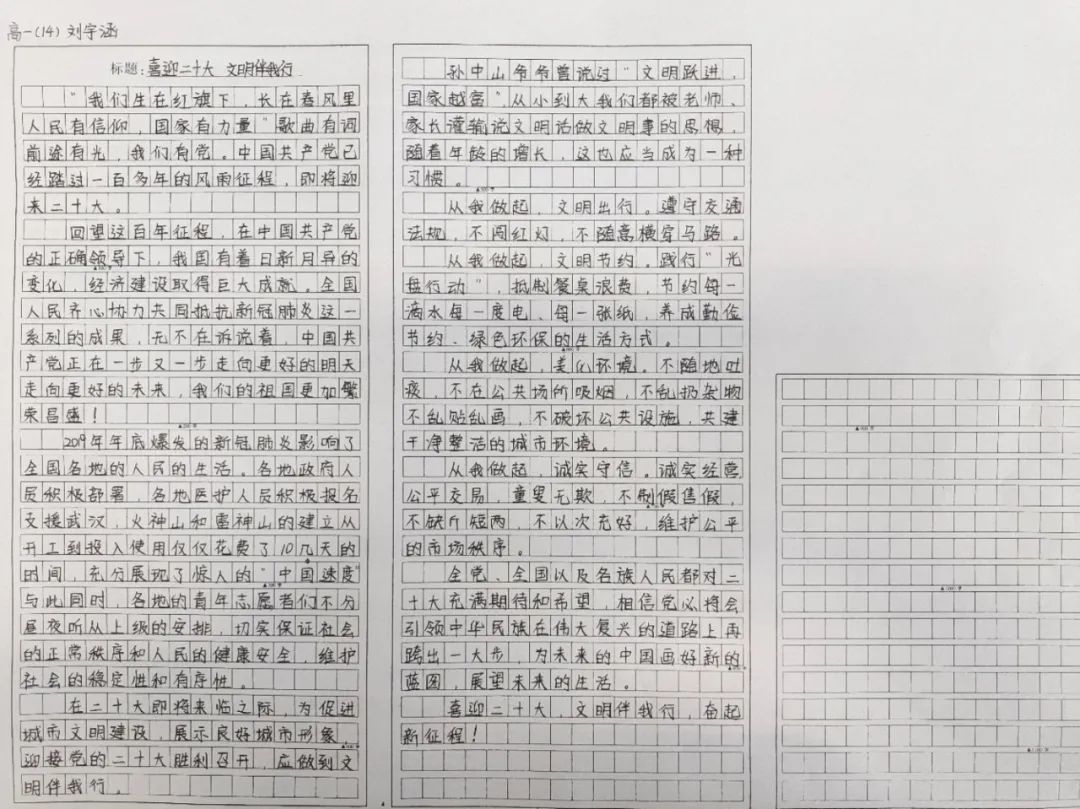 高一(14) 刘宇涵
标题:喜迎二十大 文明伴我行
“我们生在红旗下,长在春风里
人民有信仰,国家有力量”歌曲有词
前途有光,我们有党。中国共产党已
经踏过一百多年的风雨征程,即将迎
来二十大。
回望这百年征程,在中国共产党
的正确领导下,我国有着日新月异的
变化,经济建设取得巨大成就。全国
人民齐心协力共同抵抗新冠肺炎这一
系列的成果,无不在诉说着,中国共
产党正在一步又一步走向更好的明天
走向更好的未来,我们的祖国更加繁
荣昌盛!
2019年年底爆发的新冠肺炎影响了
全国各地的人民的生活。各地政府人
员积极部署,各地医护人员积极报名
支援武汉,火神山和雷神山的建立从
开工到投入使用仅仅花费了10几天的
时间,充分展现了惊人的“中国速度”
与此同时,各地的青年志愿者们不分
昼夜听从上级的安排,切实保证社会
的正常秩序和人民的健康安全,维护
社会的稳定性和有序性。
在二十大即将来临之际,为促进
城市文明建设,展示良好城市形象,
迎接党的二十大胜利召开,应做到文
明伴我行。
孙中山爷爷曾说过“文明跃进,
国家越富”,从小到大我们都被老师、
家长灌输说文明话做文明事的思想,
随着年龄的增长,这也应当成为一种
习惯。
从我做起,文明出行。遵守交通
法规,不闯红灯,不随意横穿马路。
从我做起,文明节约。践行“光
盘行动”,抵制餐桌浪费,节约每一
滴水每一度电、每一张纸,养成勤俭
节约、绿色环保的生活方式。
从我做起,美化环境。不随地吐
痰,不在公共场所吸烟,不乱扔杂物
不乱贴乱画,不破坏公共设施,共建
干净整洁的城市环境。
从我做起,诚实守信。诚实经营
公平交易,童叟无欺,不制假售假,
不缺斤短两,不以次充好,维护公平
的市场秩序。
全党、全国以及各族人民都对二
十大充满期待和希望,相信党必将会
引领中华民族在伟大复兴的道路上再
跨出一大步,为未来的中国画好新的
蓝图,展望未来的生活。
喜迎二十大,文明伴我行,奋起
新征程!